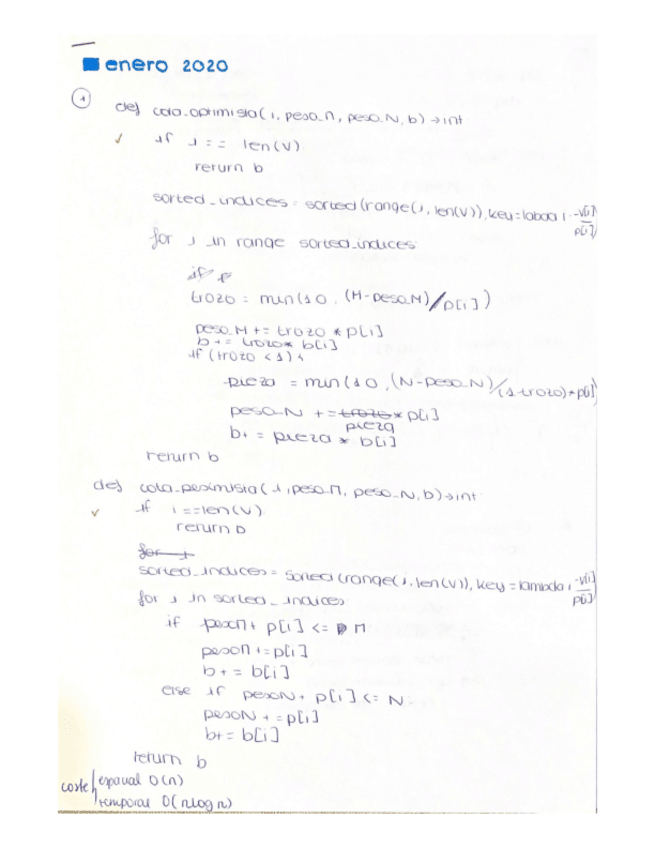 enero 2020
1
def cota_optimista(i, peso_M, peso_N, b) → int
✓ if i == len(v)
return b
sorted_indices = sorted(range(i, len(v)), key=labda i: -v[i]/p[i])
for i in range sorted_indices
if p
trozo = min(1.0, (M-peso_M)/p[i])
peso_M += trozo * p[i]
b += trozo* b[i]
if (trozo < 1) {
pieza = min(1.0, (N-peso_N)/(1-trozo)*p[i])
peso_N += trozo * p[i]
pieza
b+ = pieza * b[i]
return b
def cota_pesimista(i, peso_M, peso_N, b) → int
✓ if i == len(v)
return b
for i
sorted_indices = sorted(range(i, len(v)), key=lambda i: -v[i]/p[i])
for i in sorted_indices
if pesoM+ p[i] <= M
pesoM += p[i]
b += b[i]
else if pesoN+ p[i] <= N
pesoN += p[i]
b+= b[i]
return b
coste espacial O(n)
temporal O(nlog n)